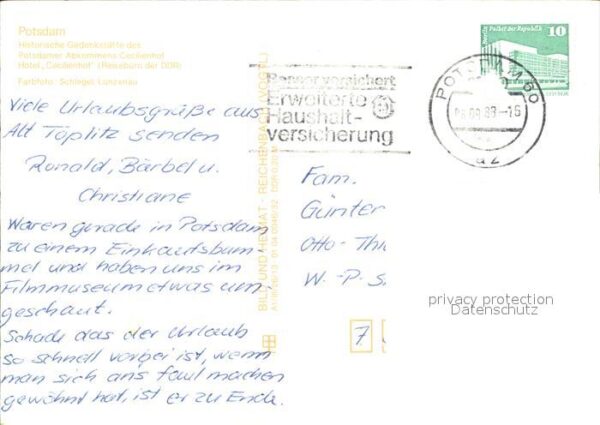 Potsdam
Historische Gedenkstätte des
Potsdamer Abkommens Cecilienhof
Hotel „Cecilienhof“ (Reisebüro der DDR)
Farbfoto: Schlegel Lunzenau
Viele Urlaubsgrüße aus
Alt Töplitz senden
Ronald, Bärbel u.
Christiane
Waren gerade in Potsdam
zu einem Einkaufsbum
mel und haben uns im
Filmmuseum etwas um-
geschaut.
Schade das der Urlaub
so schnell vorbei ist, wenn
man sich ans faul machen
gewöhnt hat, ist er zu Ende.
BILD UND HEIMAT · REICHENBACH (VOGTL)
Besser versichert
Erweiterte
Haushalt-
versicherung
POTSDAM
-16
az
Palast der Republik
10
Fam.
Günter
Otto-
W.-P.S
7
privacy protection
Datenschutz